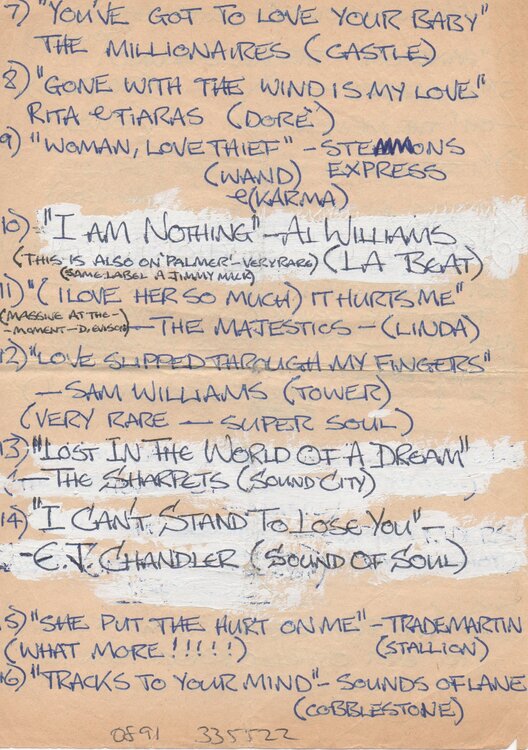 7) "YOU'VE GOT TO LOVE YOUR BABY"
THE MILLIONAIRES (CASTLE)
8) "GONE WITH THE WIND IS MY LOVE"
RITA & TIARAS (DORÉ)
9) "WOMAN, LOVE THIEF" - STEMMONS
(WAND) EXPRESS
& (KARMA)
10) "I AM NOTHING" - AL WILLIAMS
(THIS IS ALSO ON 'PALMER' - VERY RARE) (LA BEAT)
(SAME LABEL A JIMMY MACK)
11) "(I LOVE HER SO MUCH) IT HURTS ME"
(MASSIVE AT THE -
MOMENT - D. EVISON) - THE MAJESTICS - (LINDA)
12) "LOVE SLIPPED THROUGH MY FINGERS"
- SAM WILLIAMS (TOWER)
(VERY RARE - SUPER SOUL)
13) "LOST IN THE WORLD OF A DREAM"
- THE SHARPETS (SOUND CITY)
14) "I CAN'T STAND TO LOSE YOU" -
- E.J. CHANDLER (SOUND OF SOUL)
15) "SHE PUT THE HURT ON ME" - TRADEMARTIN
(WHAT MORE !!!!!) (STALLION)
16) "TRACKS TO YOUR MIND" - SOUNDS OF LANE
(COBBLESTONE)
0891 335522